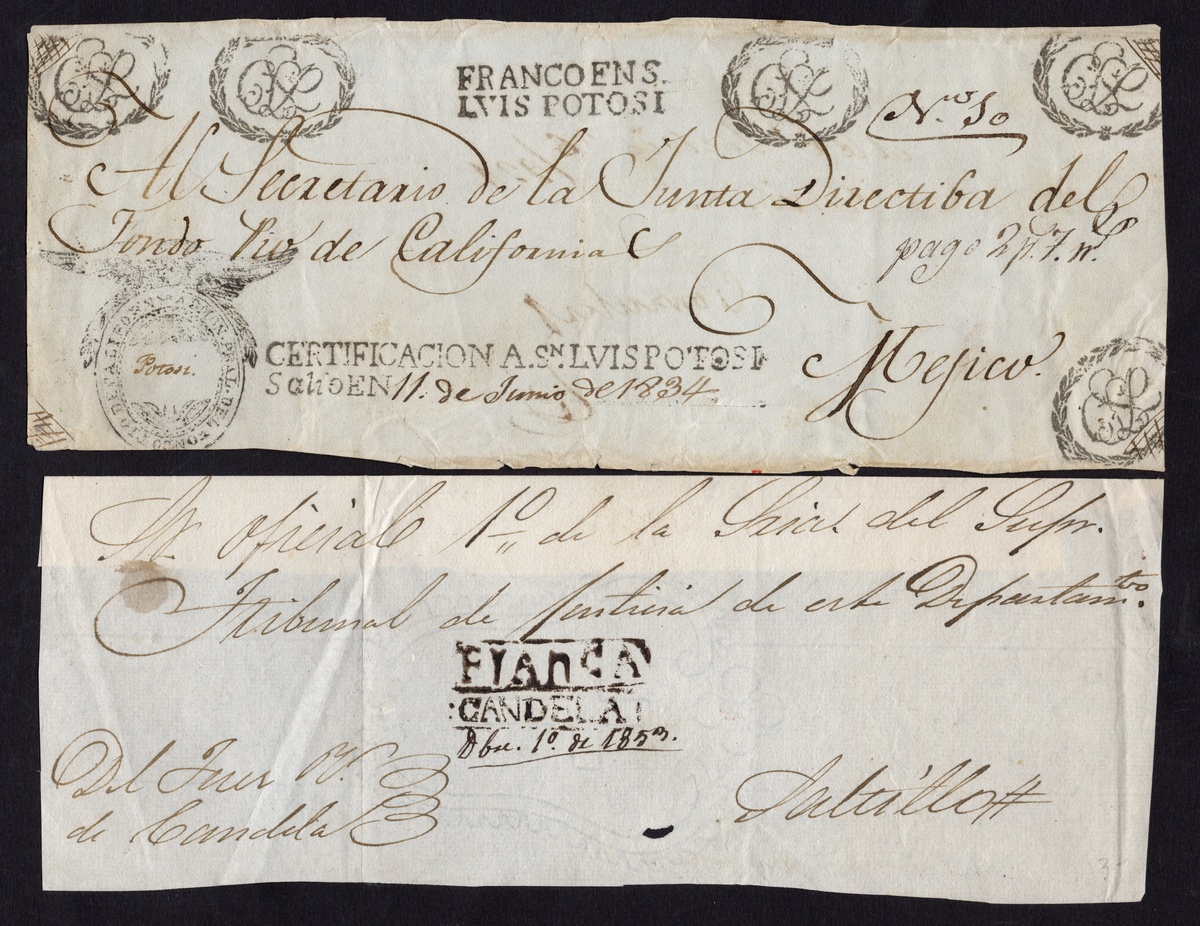 FRANCO EN S.
LVIS POTOSI
N.ro 50
Al Secretario de la Junta Directiba del
Fondo Pio de California
pago 2 p.s 7. r.s
Potosi.
CERTIFICACION A S.N LVIS POTOSI
Salio EN 11. de Junio de 1834.
Mejico.
Al oficial 1º de la Sria. del Supr.
Tribunal de Justicia de este Departam.to
FranCA
CANDELA
Dbre. 1º. de 1853.
Del Juez
de Candela
Saltillo